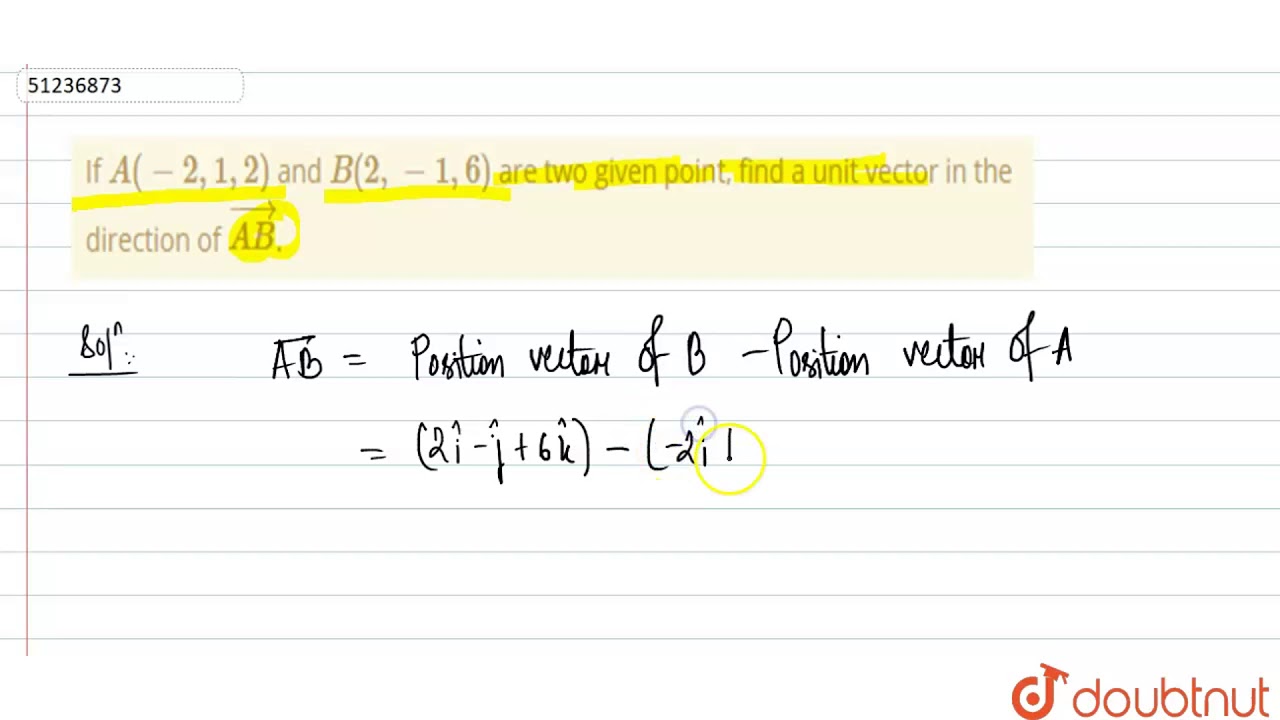 51236873
If A(−2, 1, 2) and B(2, −1, 6) are two given point, find a unit vector in the
direction of \overrightarrow{AB}.
Solⁿ:
\overline{AB} = Position vector of B − Position vector of A
= (2î − ĵ + 6k̂) − (−2î
doubtnut